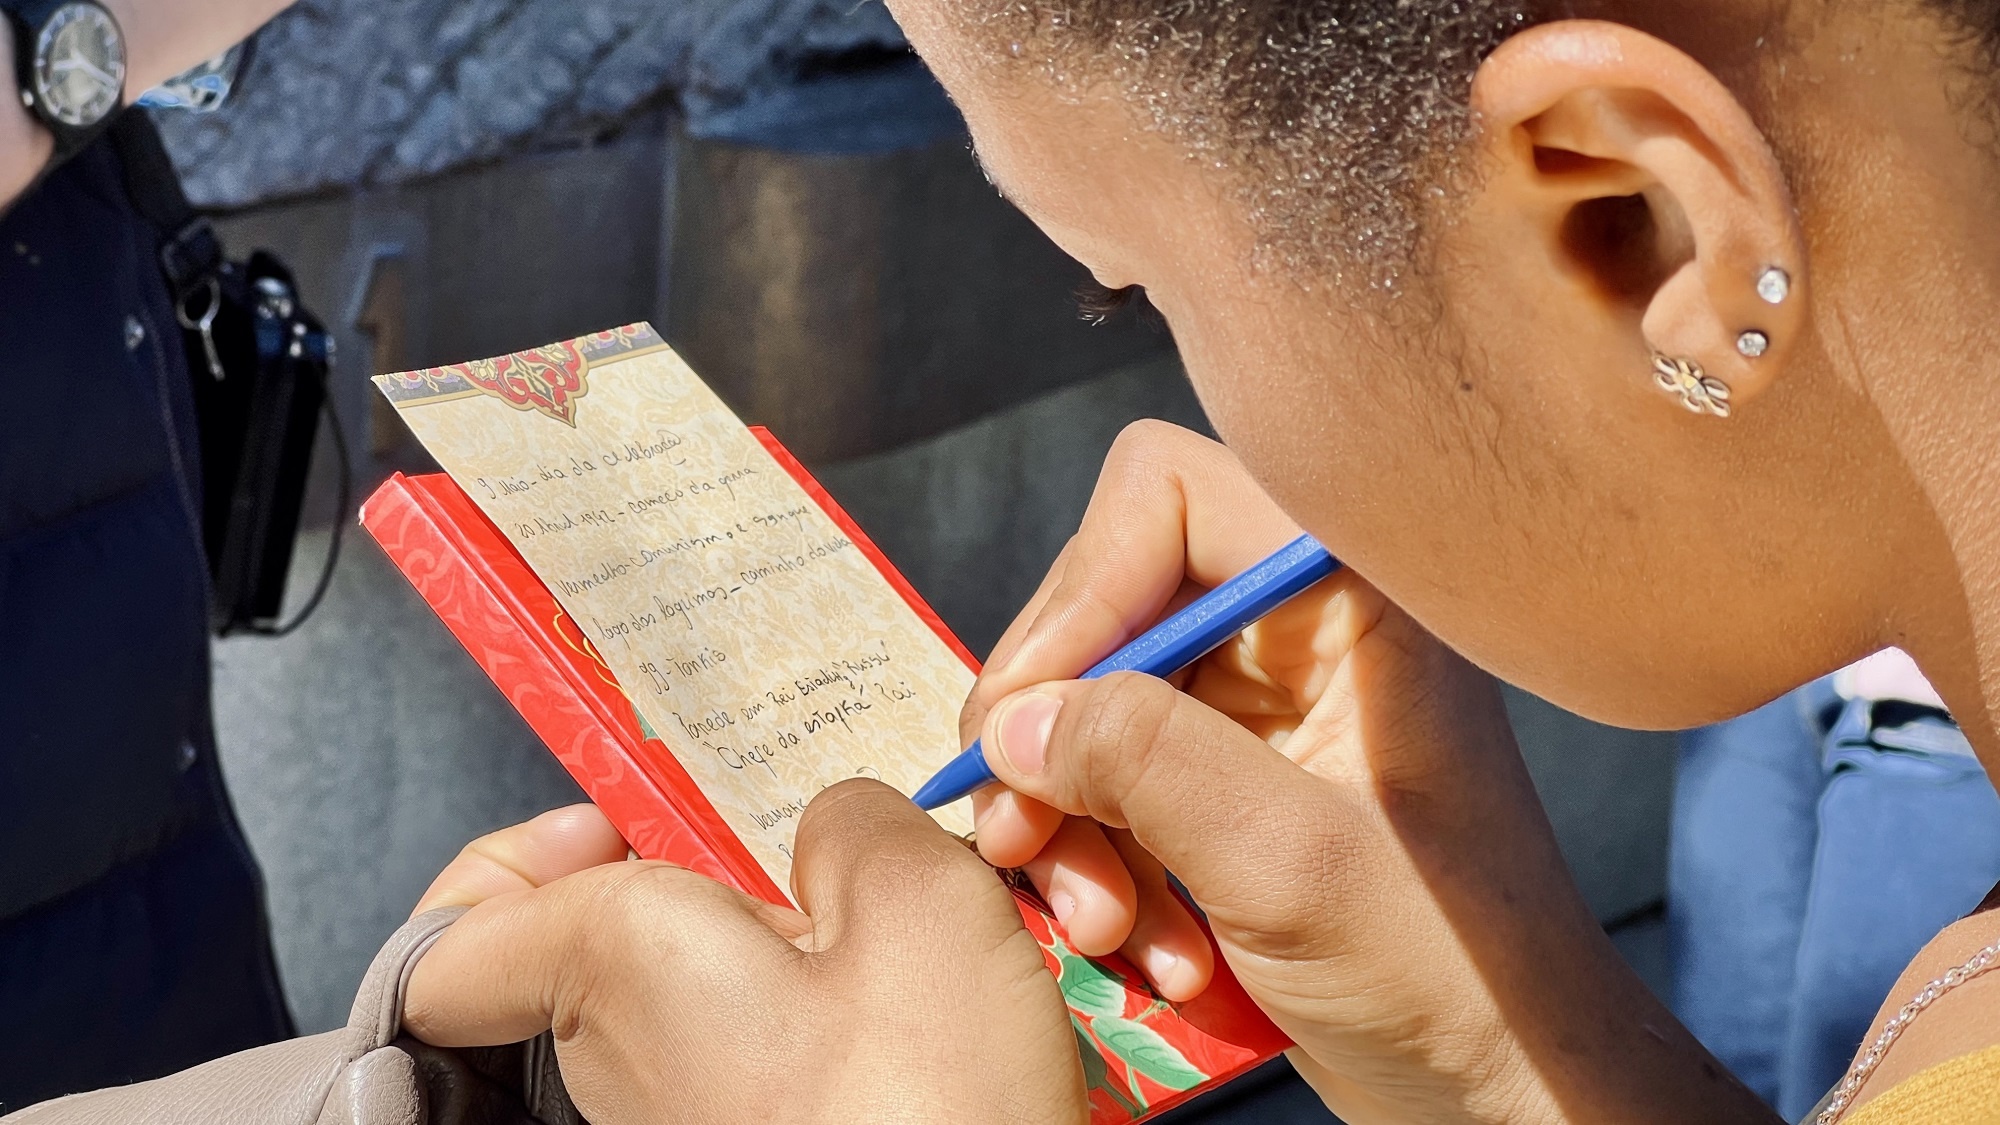 9 Maio - dia da celebração
20 Abril 1942 - começo da guerra
Vermelho - comunismo e sangue
lago das lagrimas - caminho da vida
99 - Tankis
Parede em Rei Estadu, Russu
"Chefe da estafká Rai